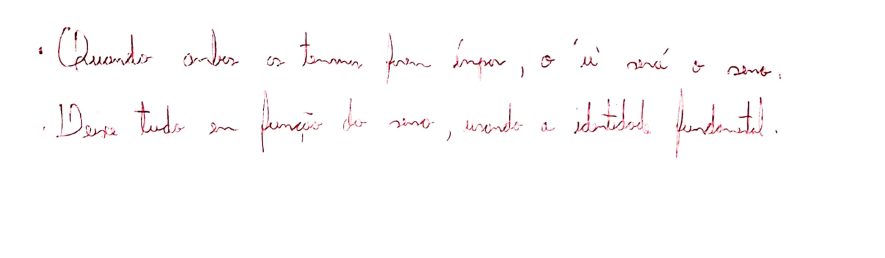 · Quando ambos os termos forem ímpar, o 'u' será o seno.
· Deixe tudo em função do seno, usando a identidade fundamental.